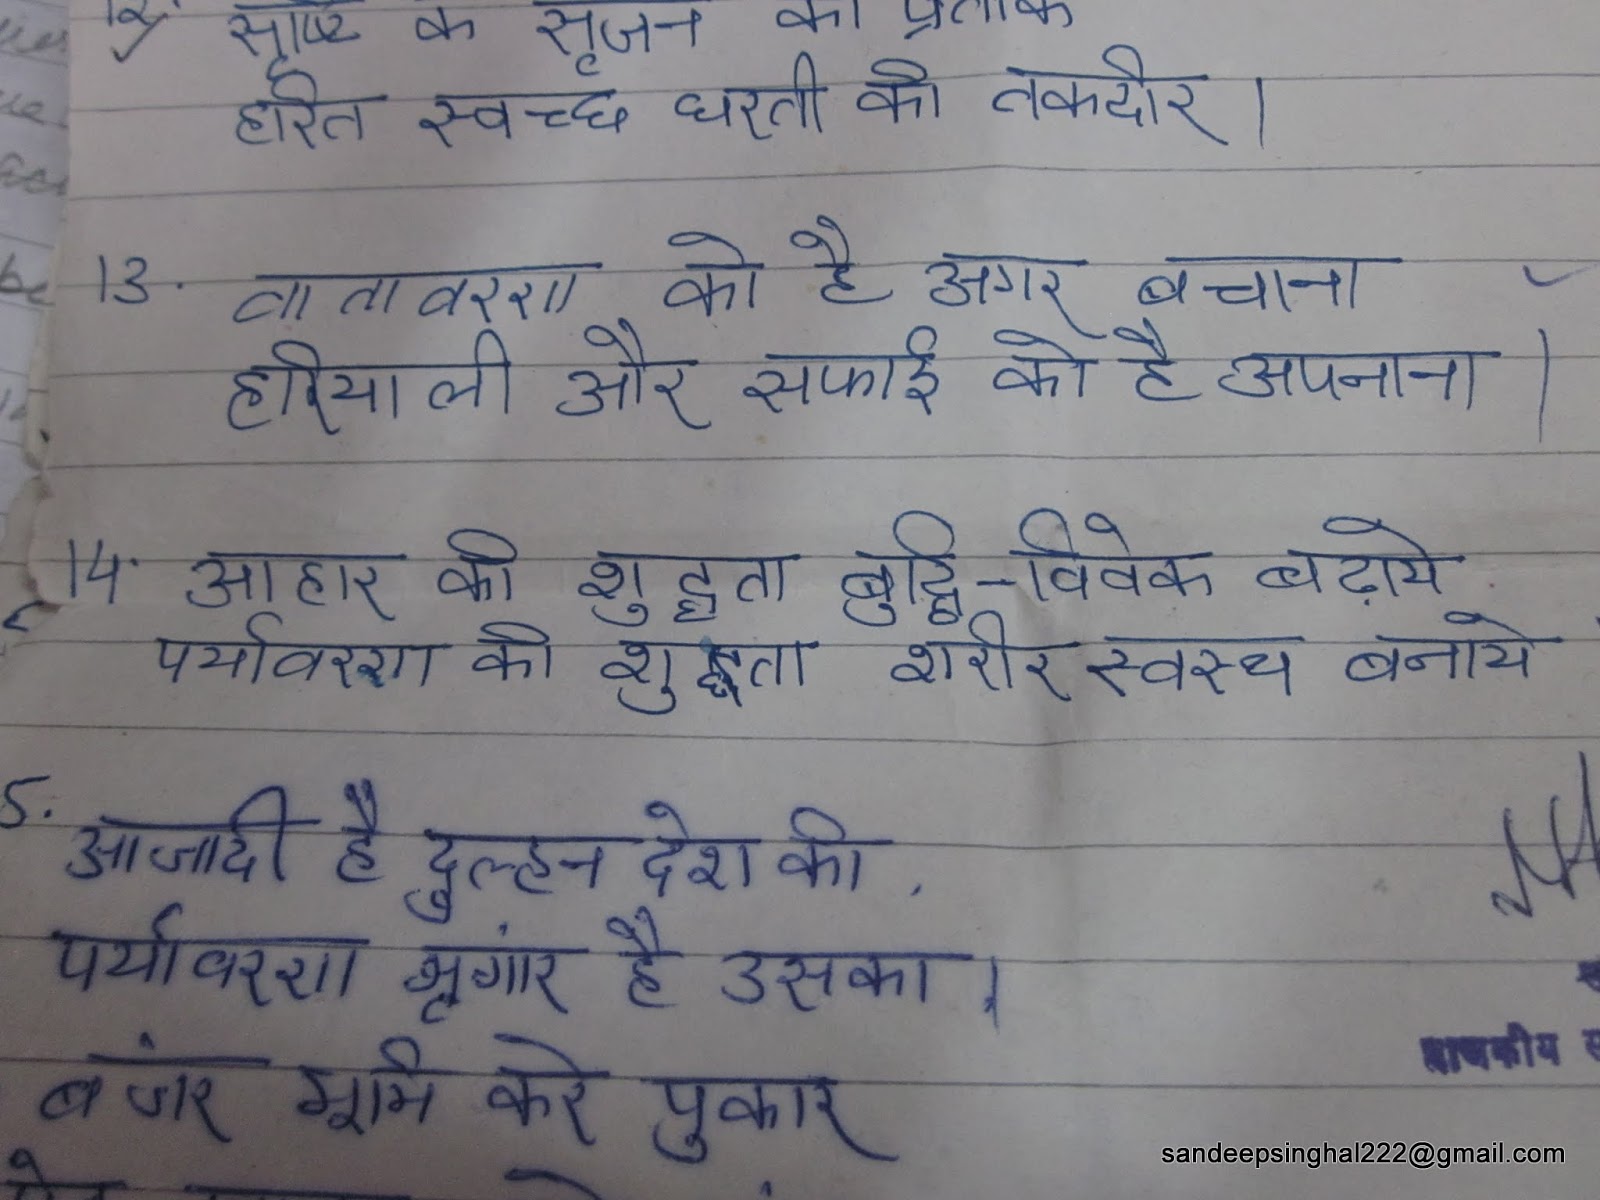 12. सृष्टि के सृजन का प्रतीक
हरित स्वच्छ धरती की तकदीर।
13. वातावरण को है अगर बचाना
हरियाली और सफाई को है अपनाना।
14. आहार की शुद्धता बुद्धि-विवेक बढ़ाये
पर्यावरण की शुद्धता शरीर स्वस्थ बनाये
5. आजादी है दुल्हन देश की,
पर्यावरण श्रृंगार है उसका।
बंजर भूमि करे पुकार
राजकीय
sandeepsinghal222@gmail.com